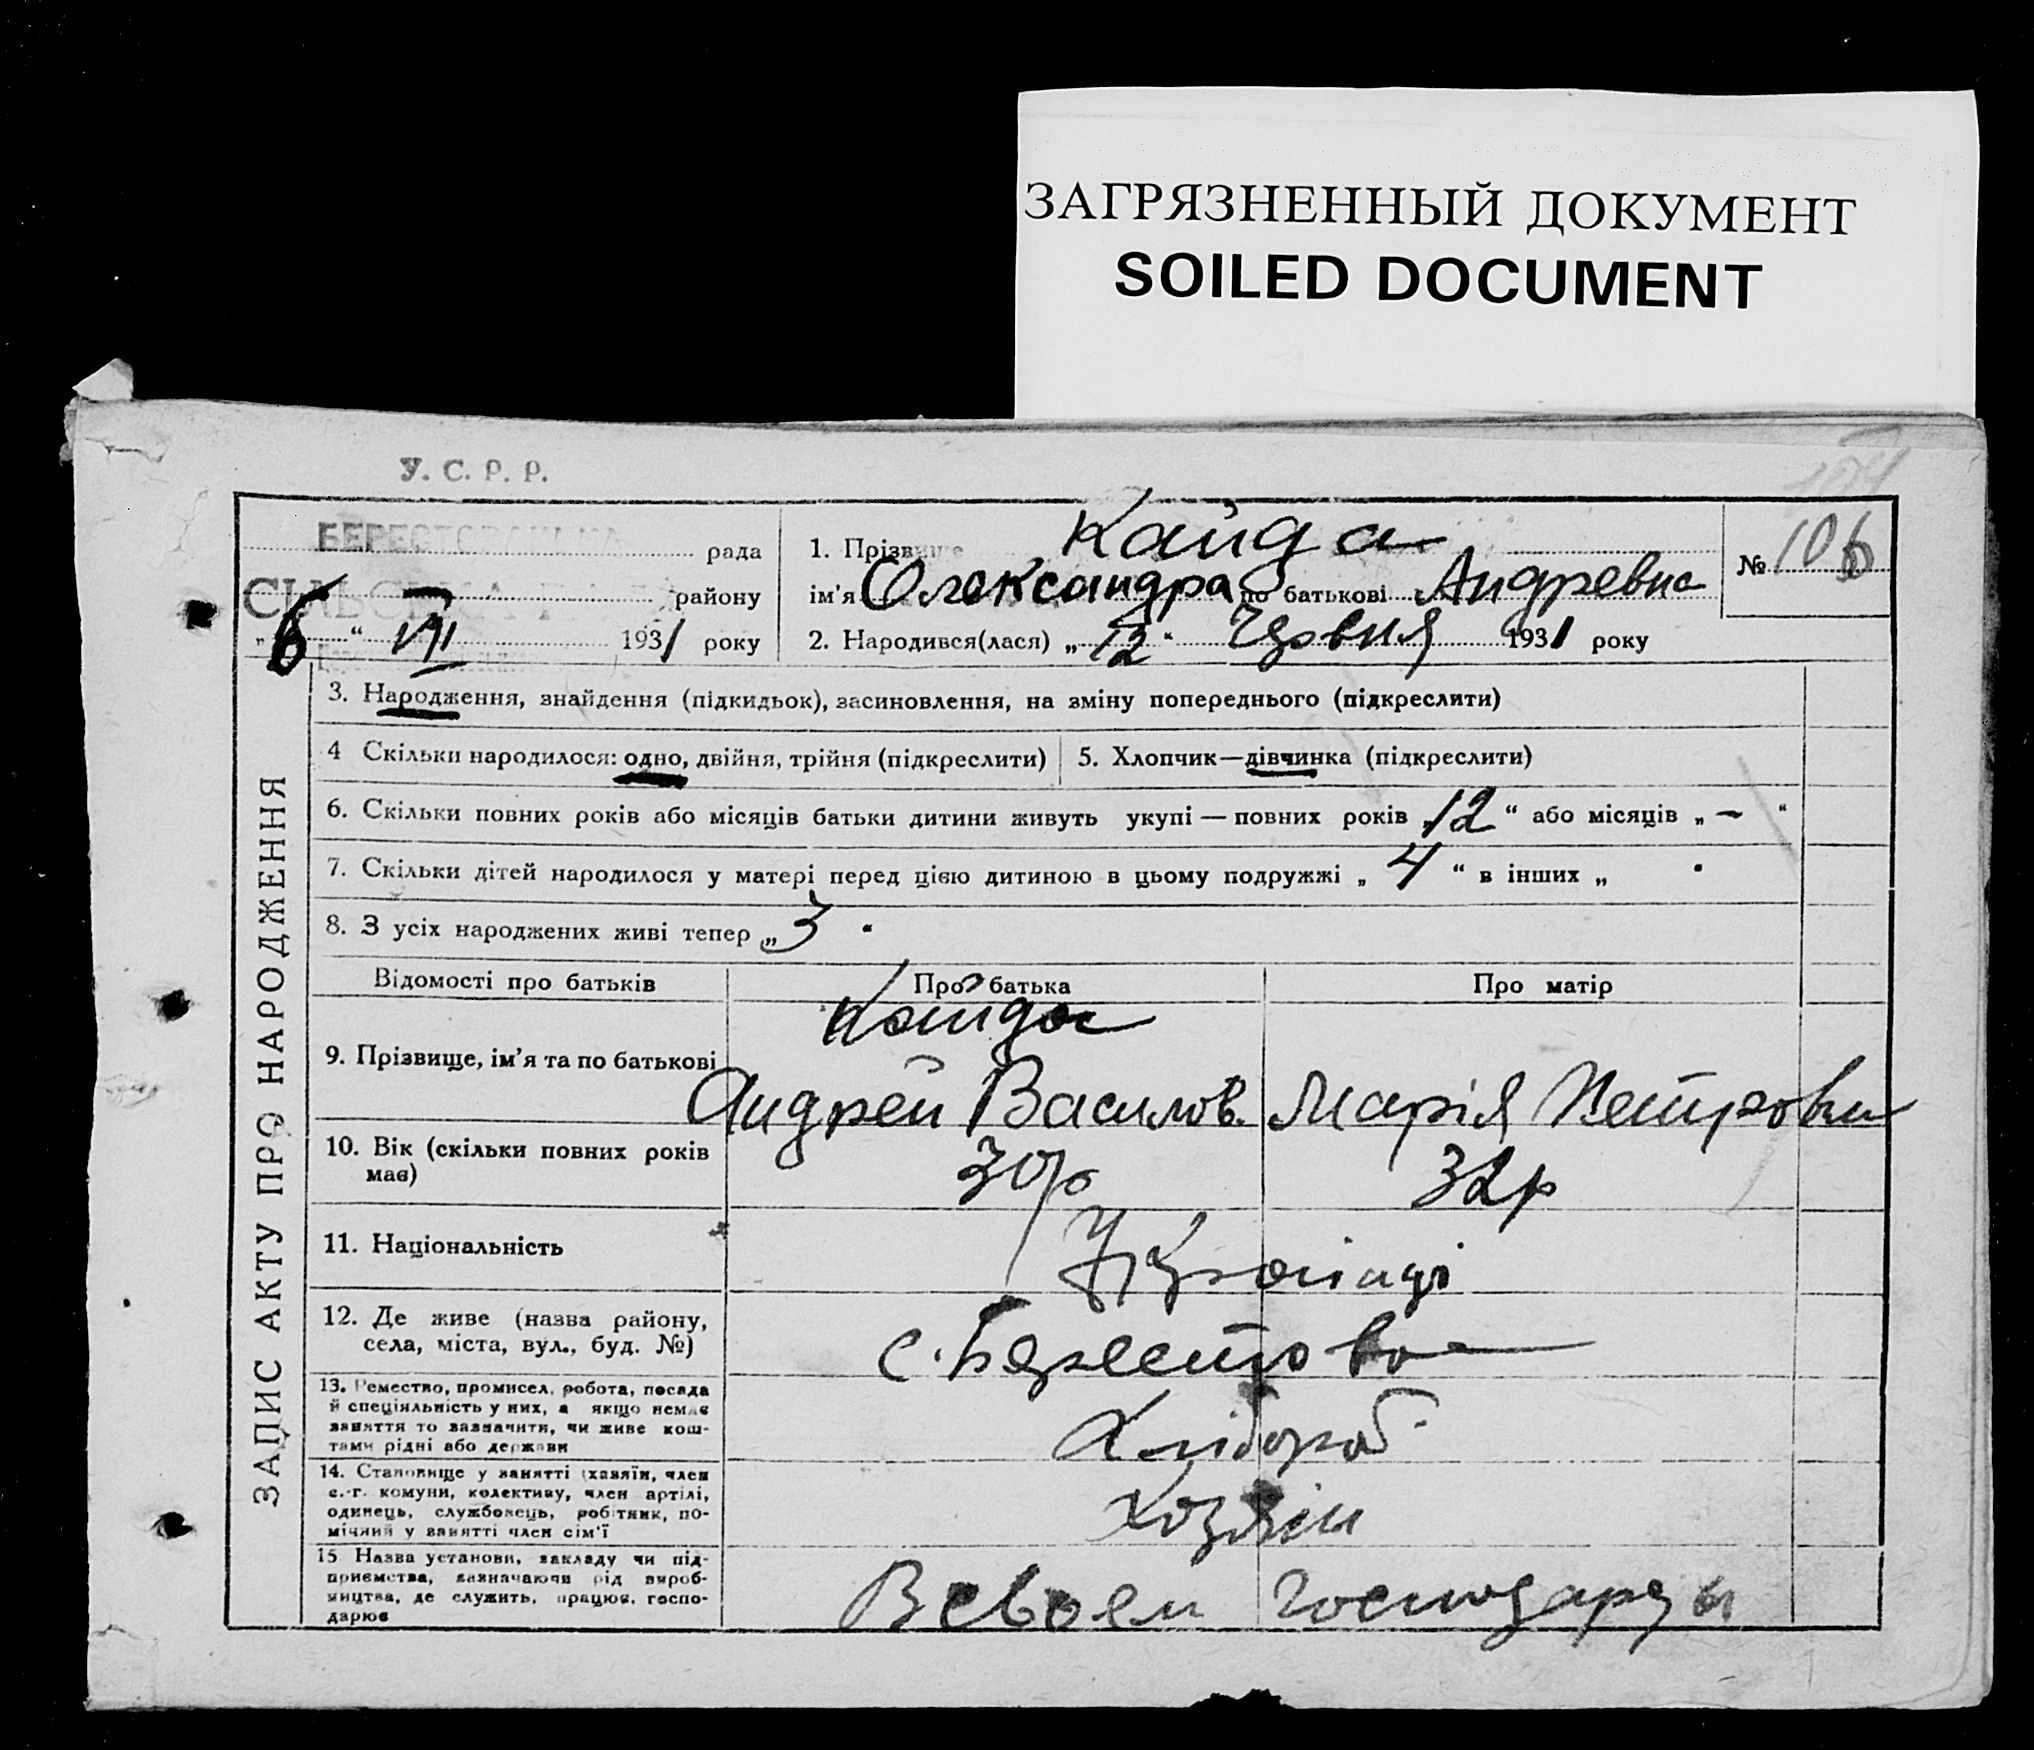 ЗАГРЯЗНЕННЫЙ ДОКУМЕНТ
SOILED DOCUMENT
У. С. Р. Р.
рада
району
6 " VII 1931 року
1. Прізвище Кайда
ім'я Олександра по батькові Андревна
2. Народився(лася) „12" Червня 1931 року
№ 106
ЗАПИС АКТУ ПРО НАРОДЖЕННЯ
3. Народження, знайдення (підкидьок), засиновлення, на зміну попереднього (підкреслити)
4 Скільки народилося: одно, двійня, трійня (підкреслити)
5. Хлопчик—дівчинка (підкреслити)
6. Скільки повних років або місяців батьки дитини живуть укупі — повних років „12" або місяців „ – "
7. Скільки дітей народилося у матері перед цією дитиною в цьому подружжі „ 4 " в інших „
8. З усіх народжених живі тепер „3 "
Відомості про батьків
Про батька
Про матір
9. Прізвище, ім'я та по батькові
Кайда
Андрей Василов. Марія Петровн
10. Вік (скільки повних років
має)
30р
32р
11. Національність
Українці
12. Де живе (назва району,
села, міста, вул., буд. №)
с. Берестова
13. Ремество, промисел, робота, посада
й спеціяльність у них, а якщо немає
заняття то зазначити, чи живе кош-
тами рідні або держави
Хлібороб
14. Становище у занятті (хазяїн, член
с.-г. комуни, колективу, член артілі,
одинець, службовець, робітник, по-
мічний у занятті член сім'ї
Хозяїн
15 Назва установи, закладу чи під-
приємства, зазначаючи рід вироб-
ництва, де служить, працює, госпо-
дарює
В своем